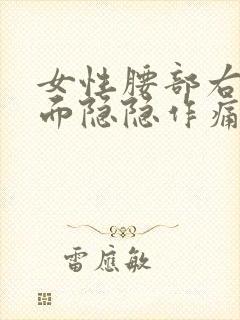 女性腰部右
而隐隐作痛
雷应敏